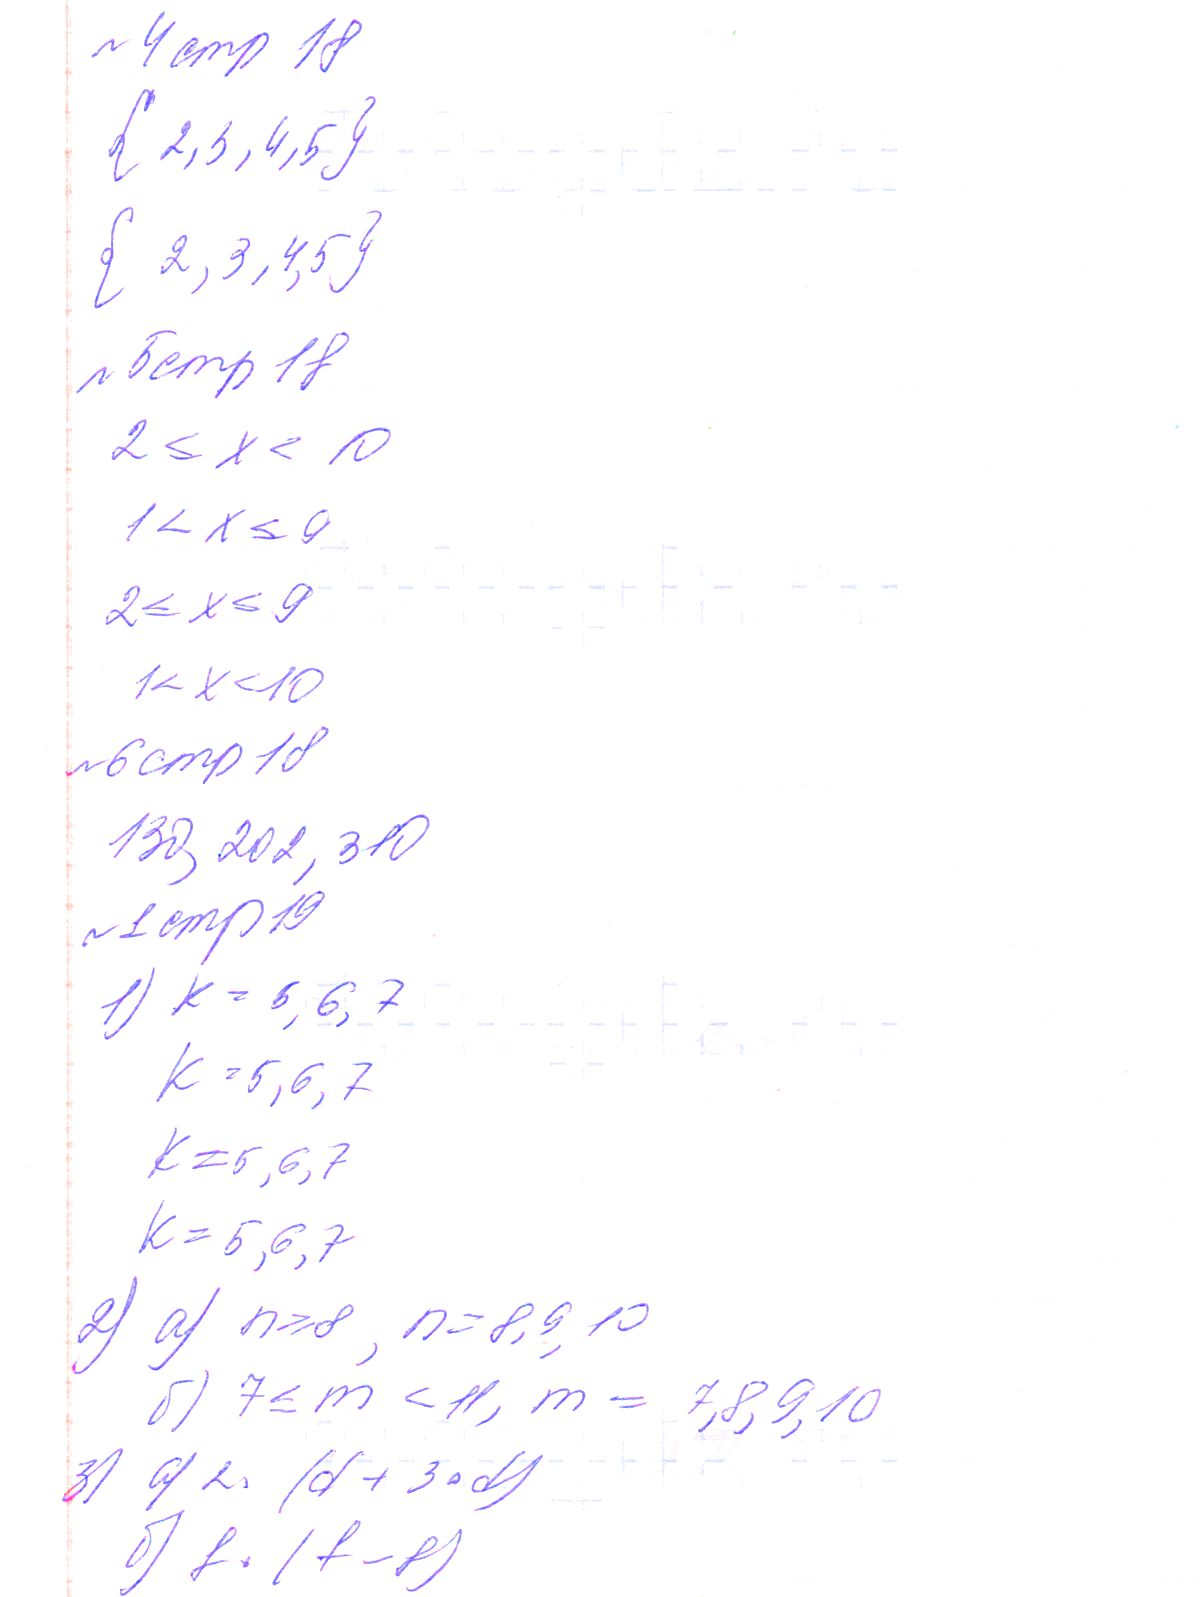 №4 стр 18
{2, 3, 4, 5}
{2, 3, 4, 5}
№5 стр 18
2 ≤ x < 10
1 < x ≤ 9
2 ≤ x ≤ 9
1 < x < 10
№6 стр 18
130, 202, 310
№1 стр 19
1) k = 5, 6, 7
k = 5, 6, 7
k = 5, 6, 7
k = 5, 6, 7
2) а) n ≥ 8, n = 8, 9, 10
б) 7 ≤ m < 11, m = 7, 8, 9, 10
3) а) 2 · (d + 3 · d)
б) f · (f - 8)